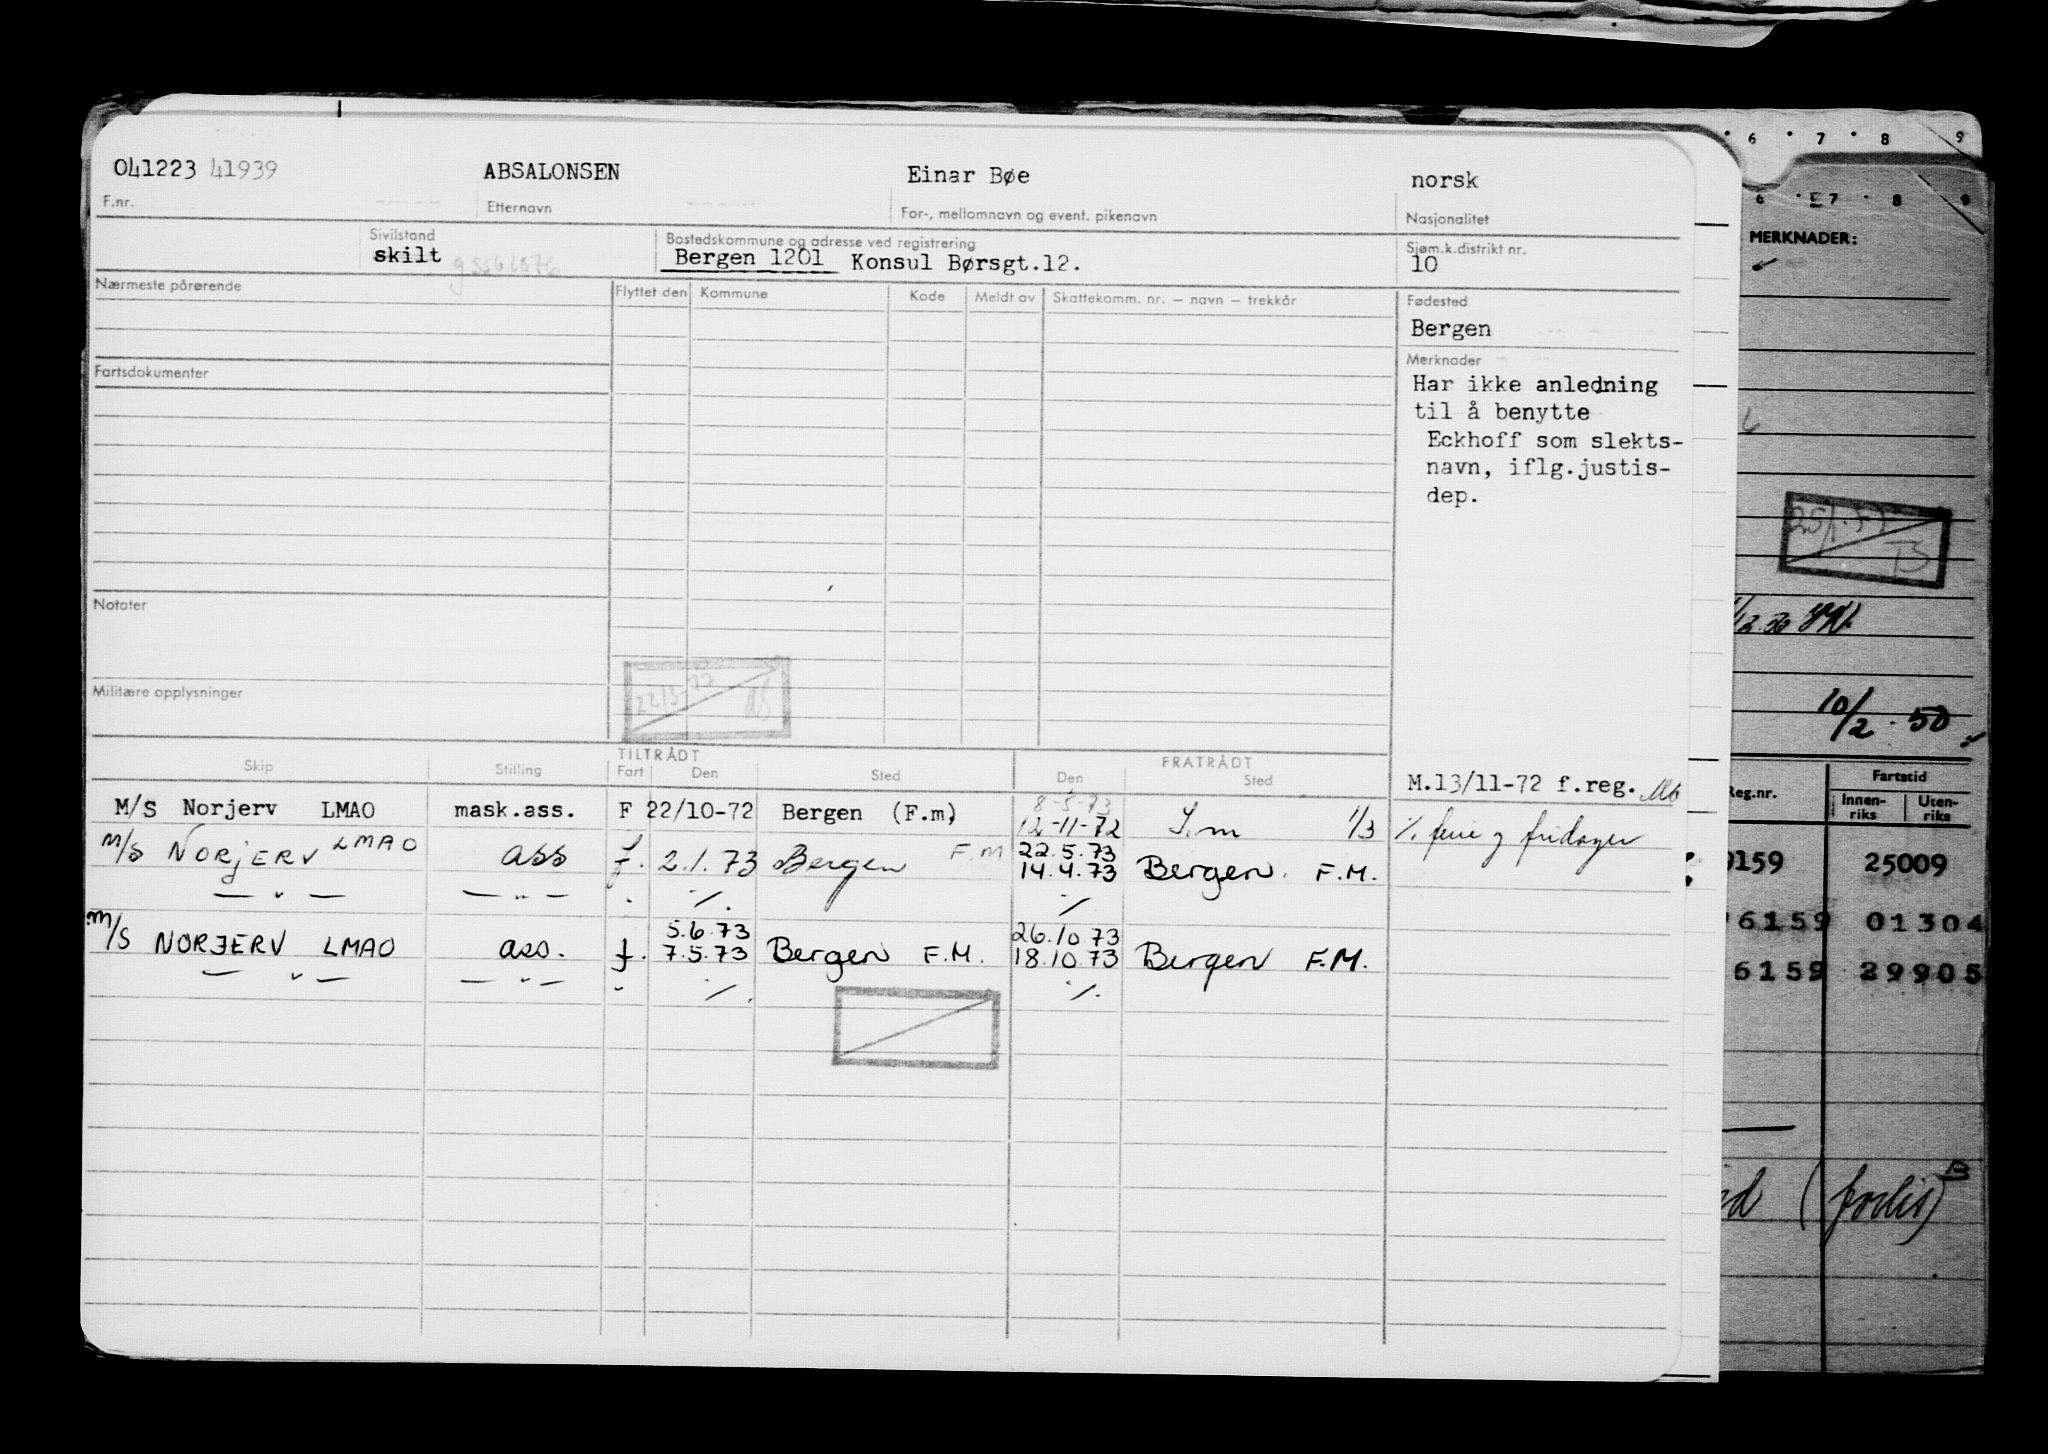 041223 41939 ABSALONSEN Einar Bøe norsk
F.nr. Etternavn For-, mellomnavn og event. pikenavn Nasjonalitet
Sivilstand Bostedskommune og adresse ved registrering Sjøm.k.distrikt nr.
skilt Bergen 1201 Konsul Børsgt.12. 10
Nærmeste pårørende Flyttet den Kommune Kode Meldt av Skattekomm. nr. — navn — trekkår Fødested
Bergen
Fartsdokumenter Merknader
Har ikke anledning
til å benytte
Eckhoff som slekts-
navn, iflg.justis-
dep.
Notater
Militære opplysninger
Skip Stilling TILTRÅDT FRATRÅDT
Fart Den Sted Den Sted
M.13/11-72 f.reg.
8-5-73
M/S Norjerv LMAO mask.ass. F 22/10-72 Bergen (F.m) 12-11-72 1/3 % ferie og fridager
22.5.73
M/S NORJERV LMAO ass f. 2.1.73 Bergen F.M 14.4.73 Bergen. F.M.
— " — — " — . %. %
5.6.73 26.10.73
M/S NORJERV LMAO ass. f. 7.5.73 Bergen F.M. 18.10.73 Bergen F.M.
— " — — " — - %. %.
6 7 8 9
6 7 8 9
MERKNADER:
10/2.50
Reg.nr. Fartstid
Innen-
riks Uten-
riks
159 25009
6159 01304
6159 29905
B